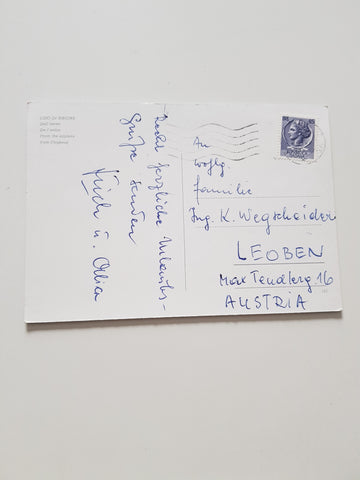 LIDO DI SAVIO
Dall'aereo
De l'avion
From the airplane
Vom Flugzeug
Recht herzliche Urlaubs-
Grüße senden
Erich u.
An
wohlg.
Familie
Ing. K. Wegscheider
LEOBEN
Max Tendlerg. 16
AUSTRIA